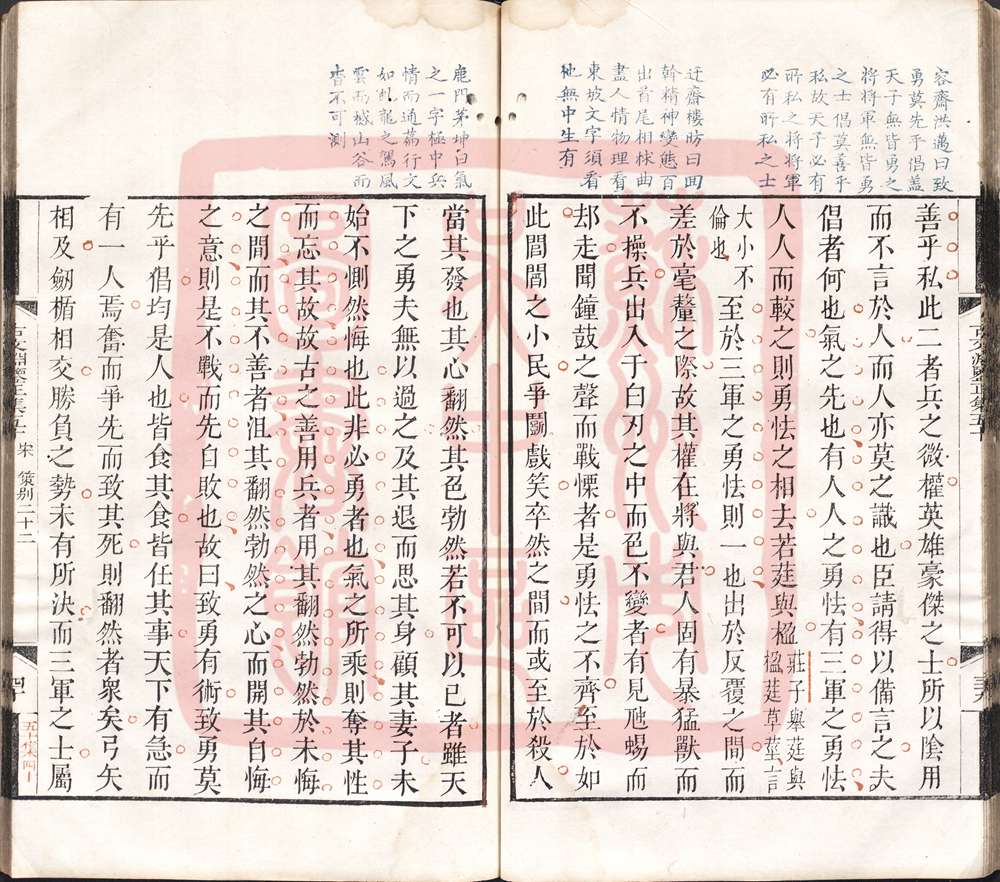 容齋洪邁曰致
勇莫先乎倡蓋
天子無皆勇之
將將軍無皆勇
之士倡莫善乎
私故天子必有
所私之將將軍
必有所私之士
迂齋樓昉曰囬
斡精神變態百
出首尾相捄曲
盡人情物理看
東坡文字須看
他無中生有
善乎私此二者兵之微權英雄豪傑之士所以陰用
而不言於人而人亦莫之識也臣請得以備言之夫
倡者何也氣之先也有人人之勇怯有三軍之勇怯
人人而較之則勇怯之相去若莛與楹莊子舉莛與
楹莛草莖言
大小不
倫也至於三軍之勇怯則一也出於反覆之間而
差於毫釐之際故其權在將與君人固有暴猛獸而
不操兵出入于白刃之中而色不變者有見虺蜴而
却走聞鐘鼓之聲而戰慄者是勇怯之不齊至於如
此閭閻之小民爭鬬戲笑卒然之間而或至於殺人
鹿門茅坤曰氣
之一字極中兵
情而通篇行文
如虬龍之駕風
雲而撼山谷而
杳不可測
當其發也其心翻然其色勃然若不可以已者雖天
下之勇夫無以過之及其退而思其身顧其妻子未
始不惻然悔也此非必勇者也氣之所乘則奪其性
而忘其故故古之善用兵者用其翻然勃然於未悔
之間而其不善者沮其翻然勃然之心而開其自悔
之意則是不戰而先自敗也故曰致勇有術致勇莫
先乎倡均是人也皆食其食皆任其事天下有急而
有一人焉奮而爭先而致其死則翻然者衆矣弓矢
相及劒楯相交勝負之勢未有所決而三軍之士屬
宋 策别二十二